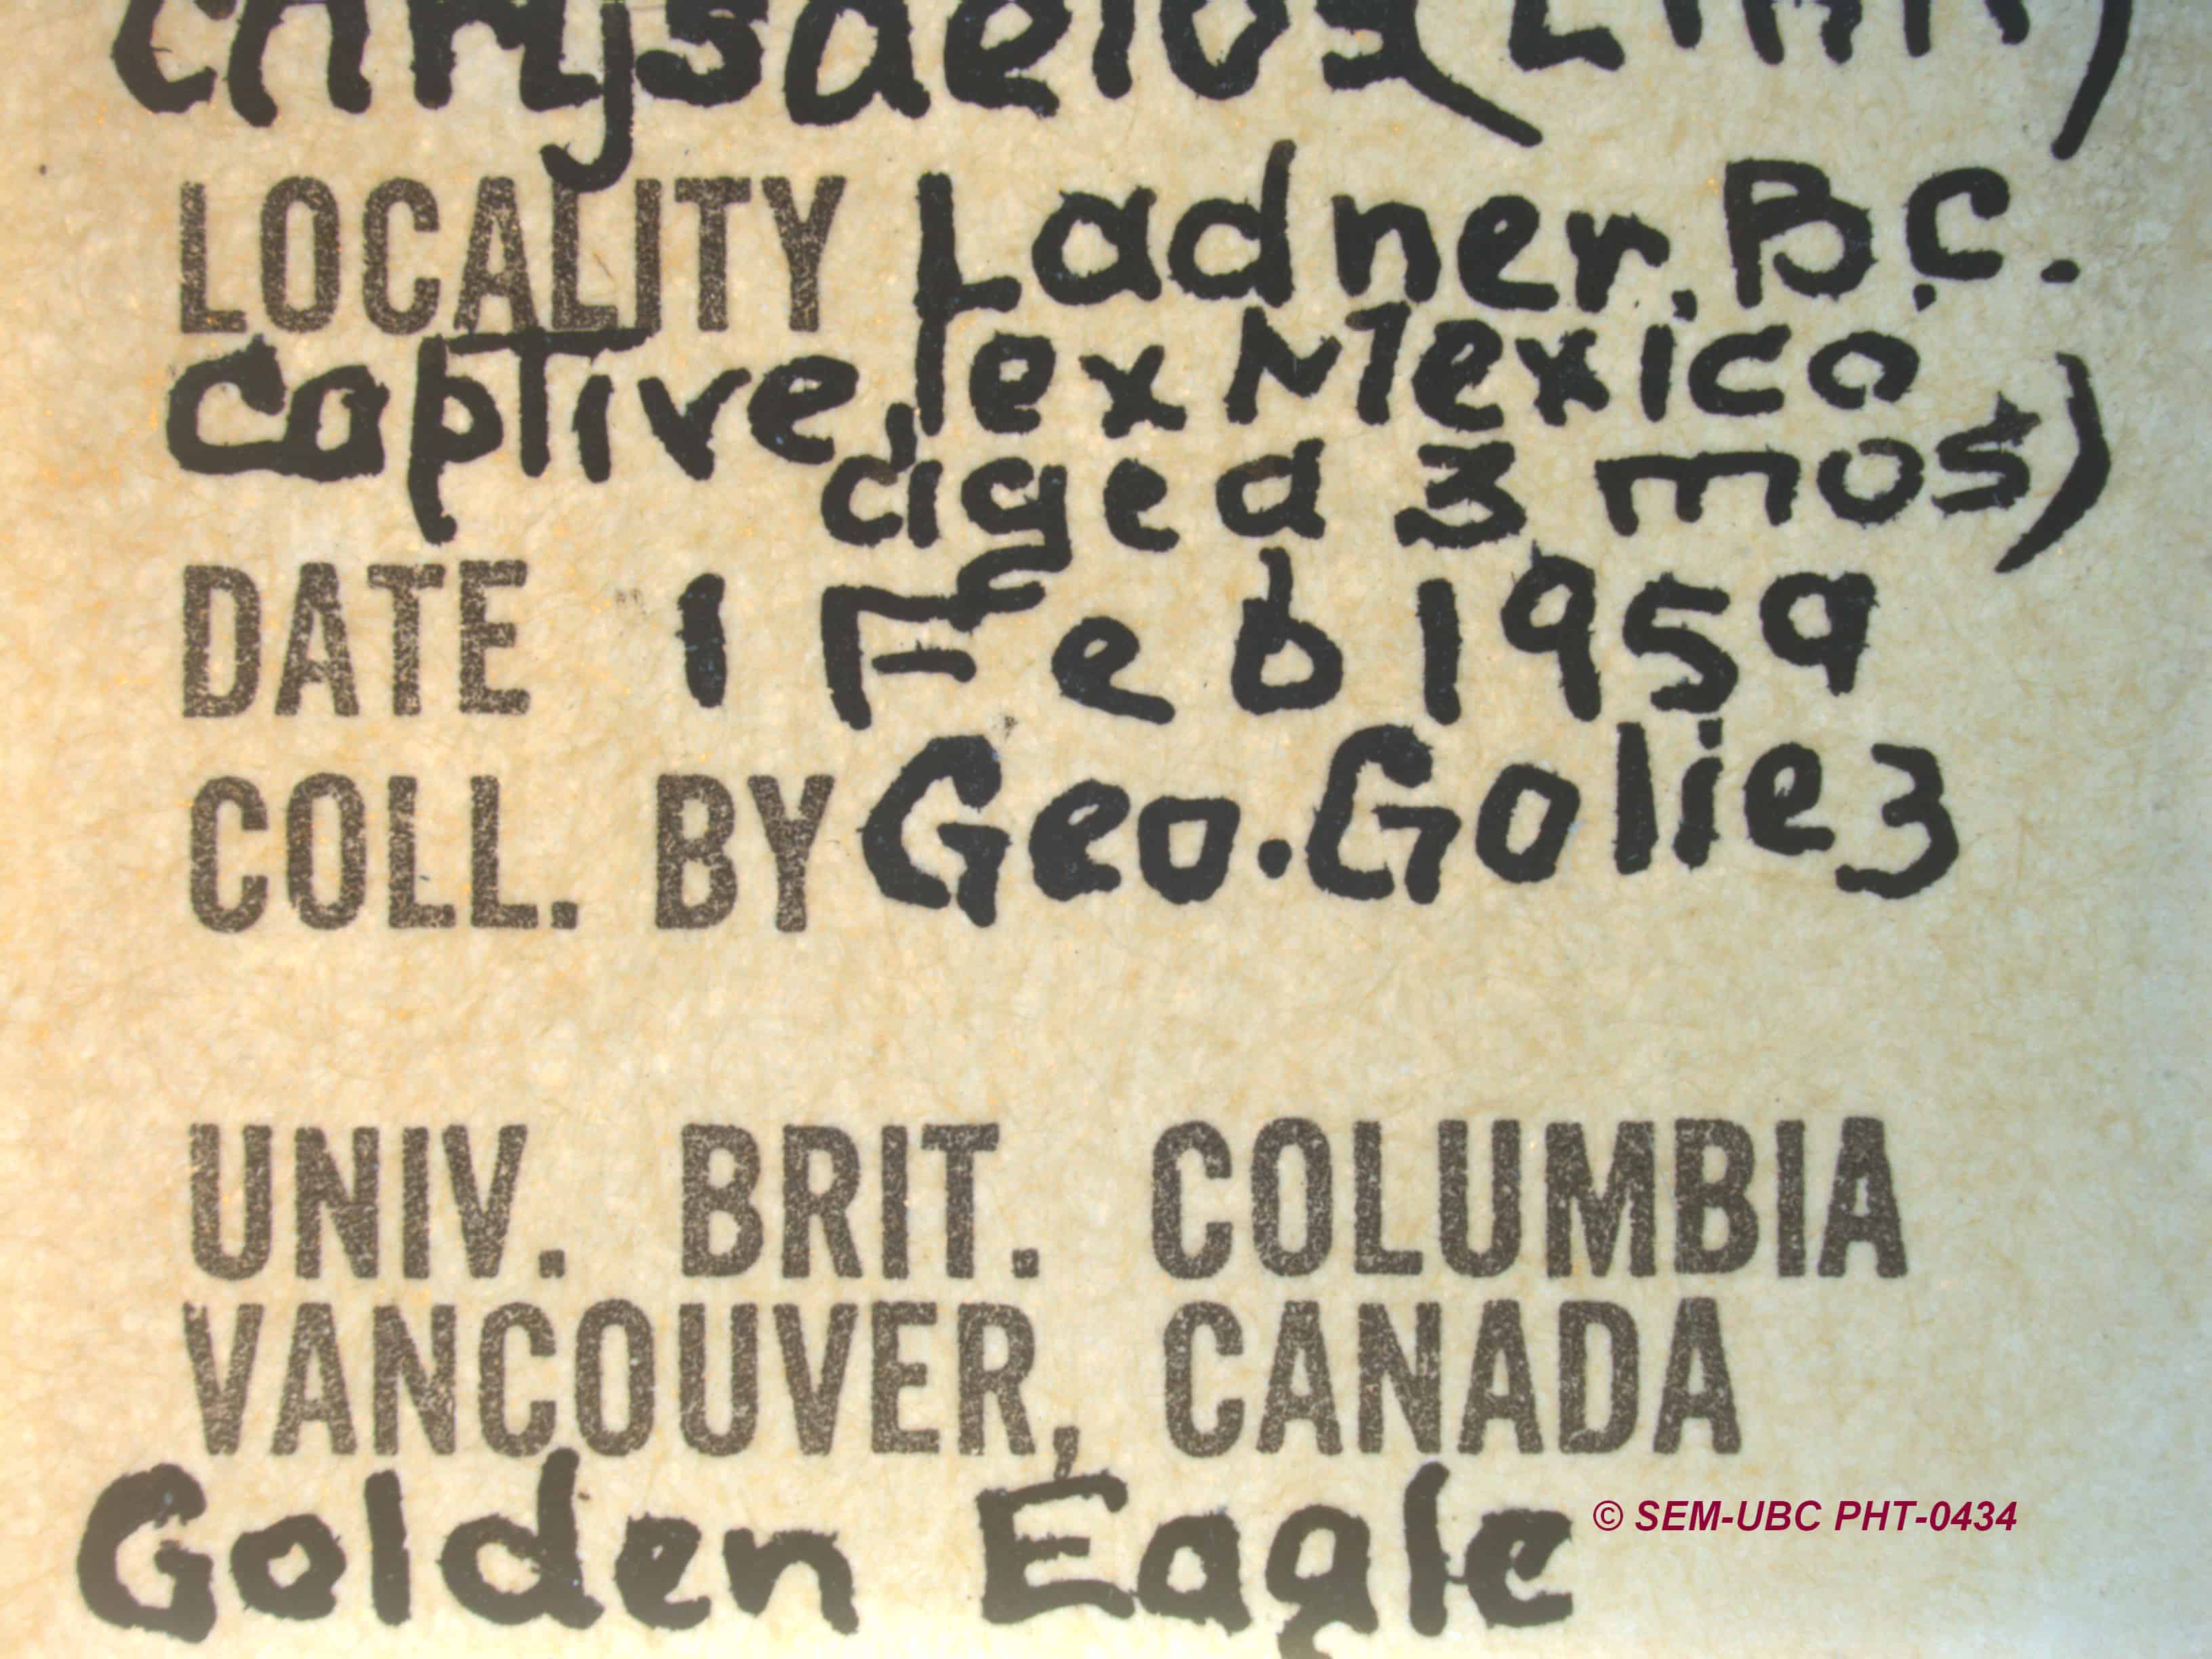 chrysaetos (Linn)
LOCALITY Ladner, B.C.
captive, (ex Mexico
aged 3 mos)
DATE 1 Feb 1959
COLL. BY Geo. Goliez
UNIV. BRIT. COLUMBIA
VANCOUVER, CANADA
Golden Eagle
© SEM-UBC PHT-0434